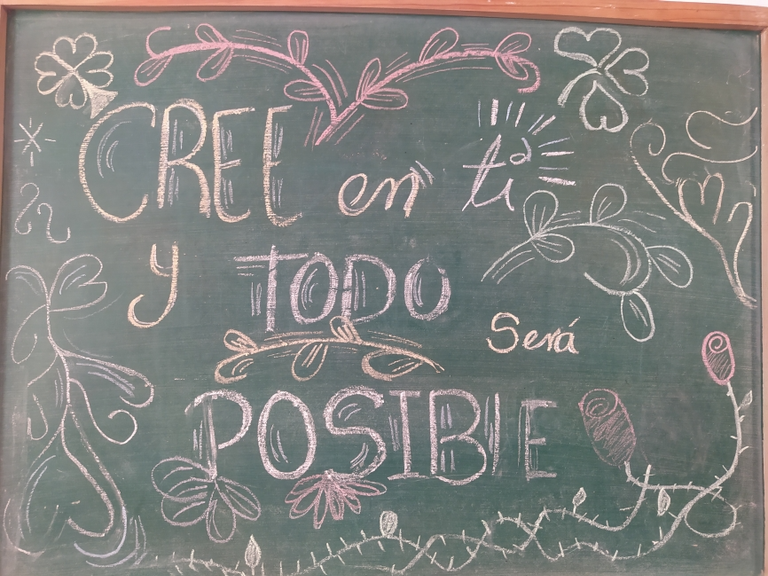 CREE en ti
y TODO Será
POSIBlE